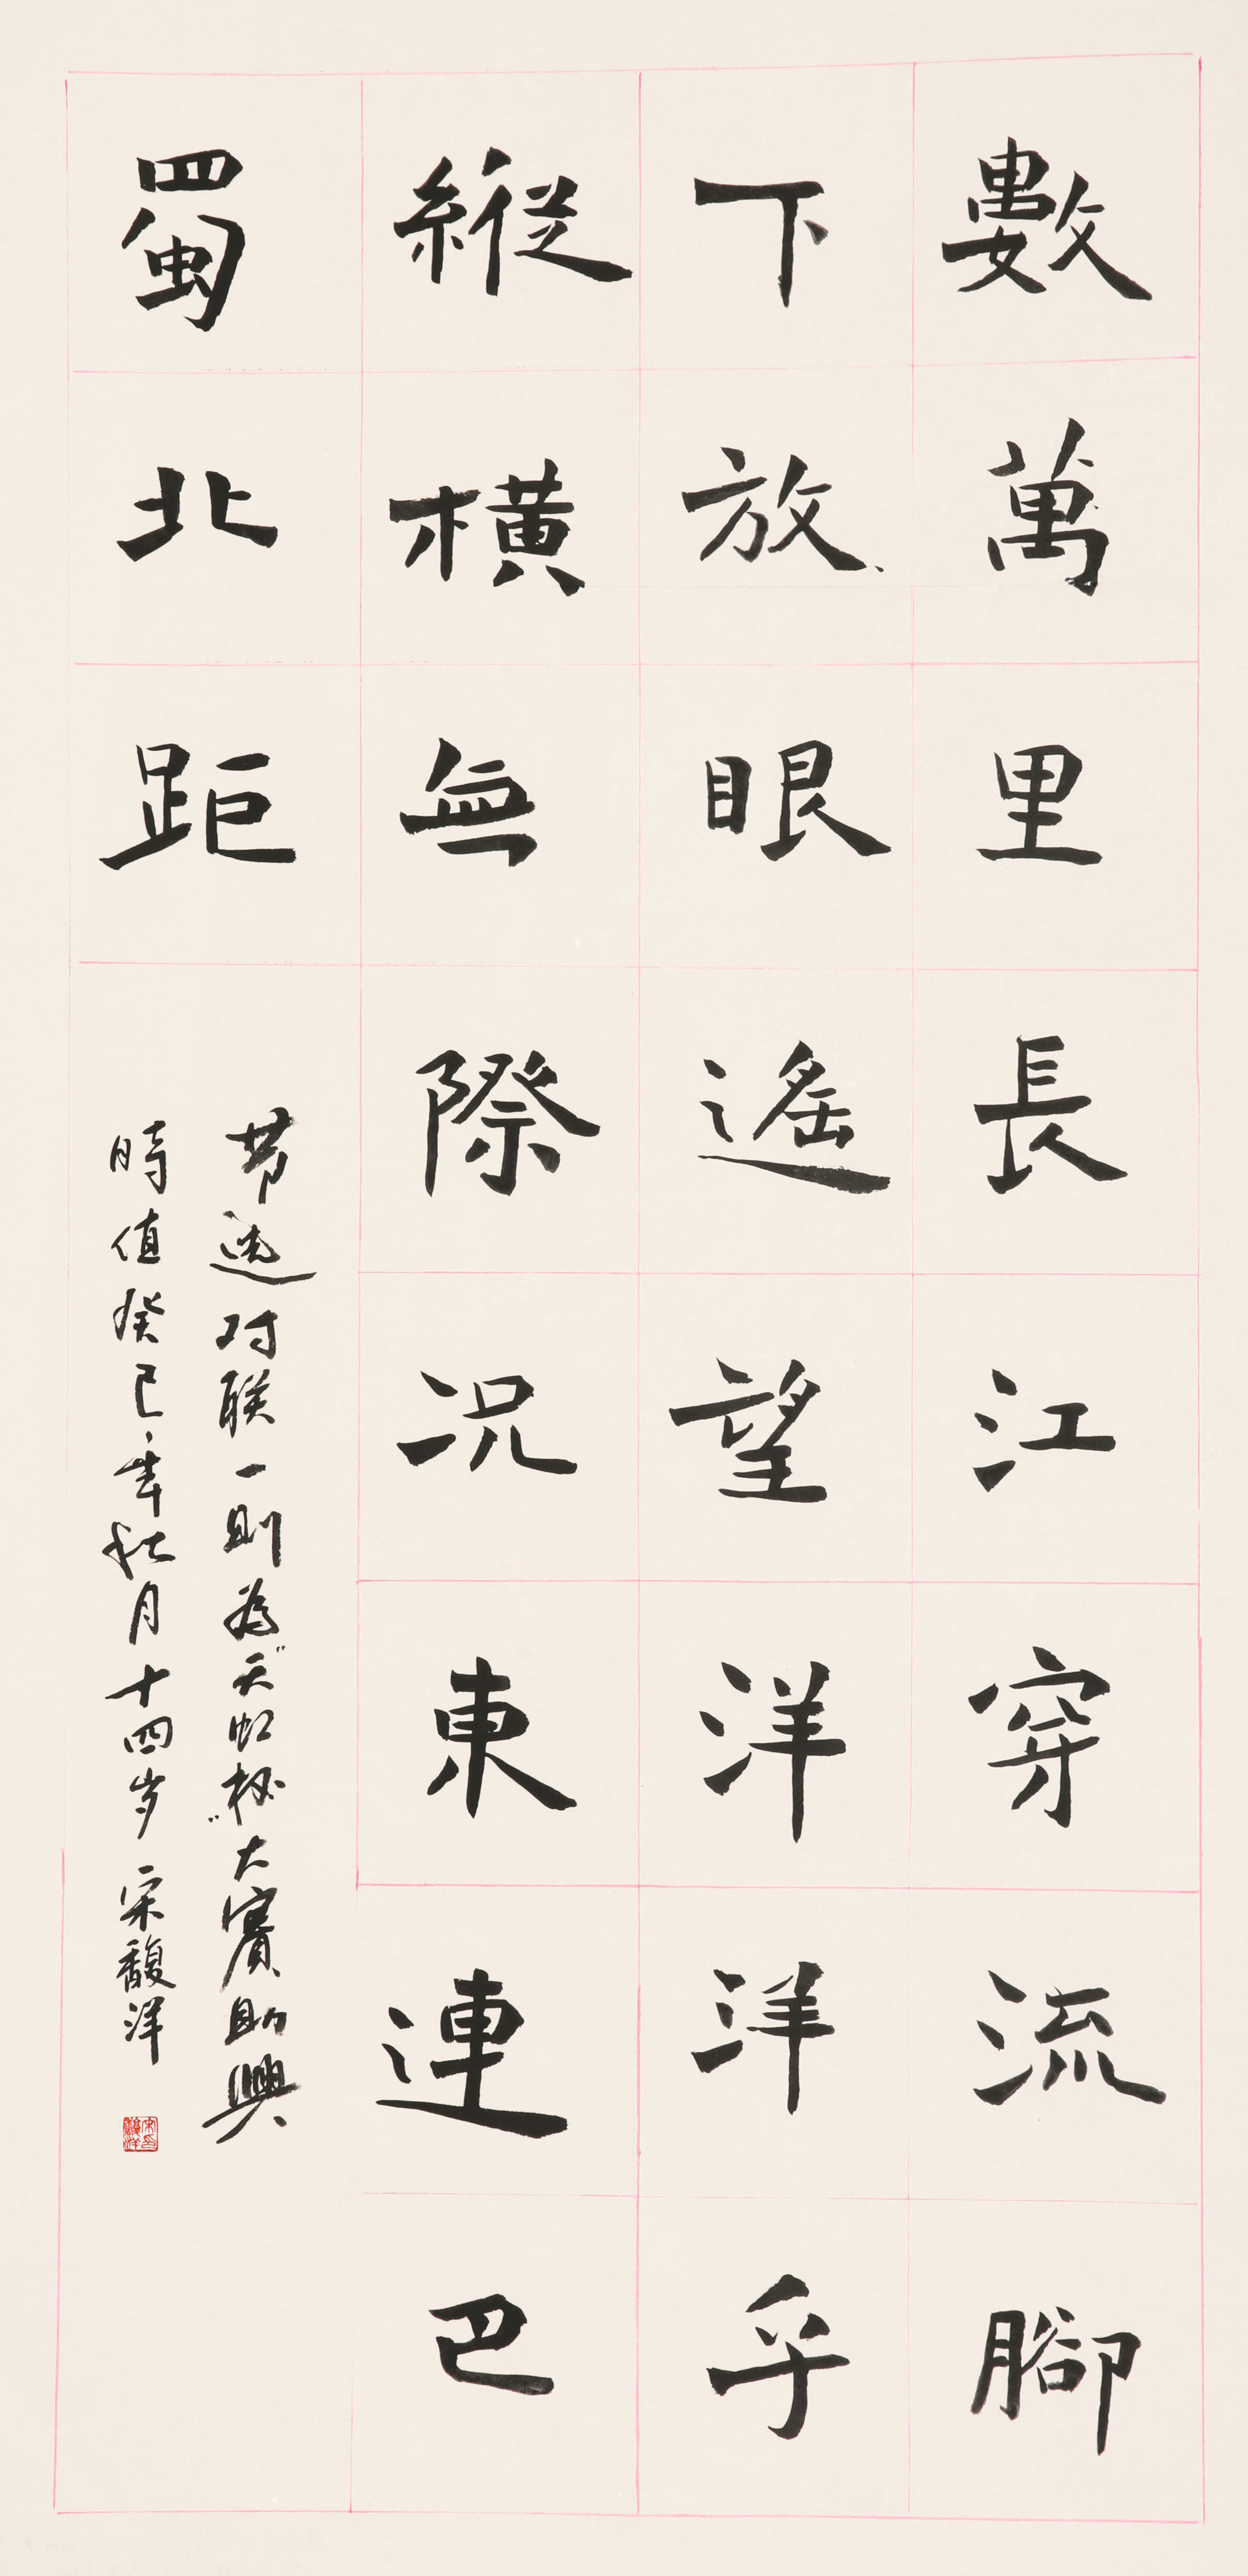 數萬里長江穿流腳
下放眼遙望洋洋乎
縱橫無際况東連巴
蜀北距
节选对联一則為“天虹杯”大賽助興
時值癸巳年秋月十四岁宋馥洋